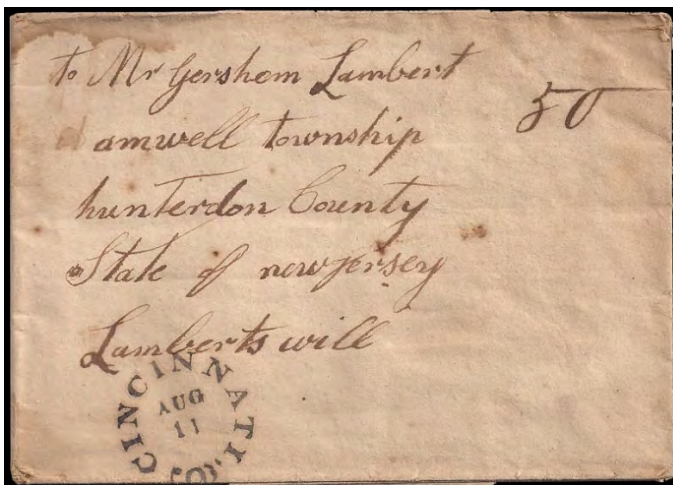 to Mr Gershom Lambert
50
amwell township
hunterdon County
State of new jersey
Lamberts will
CINCINNATI.
AUG
11